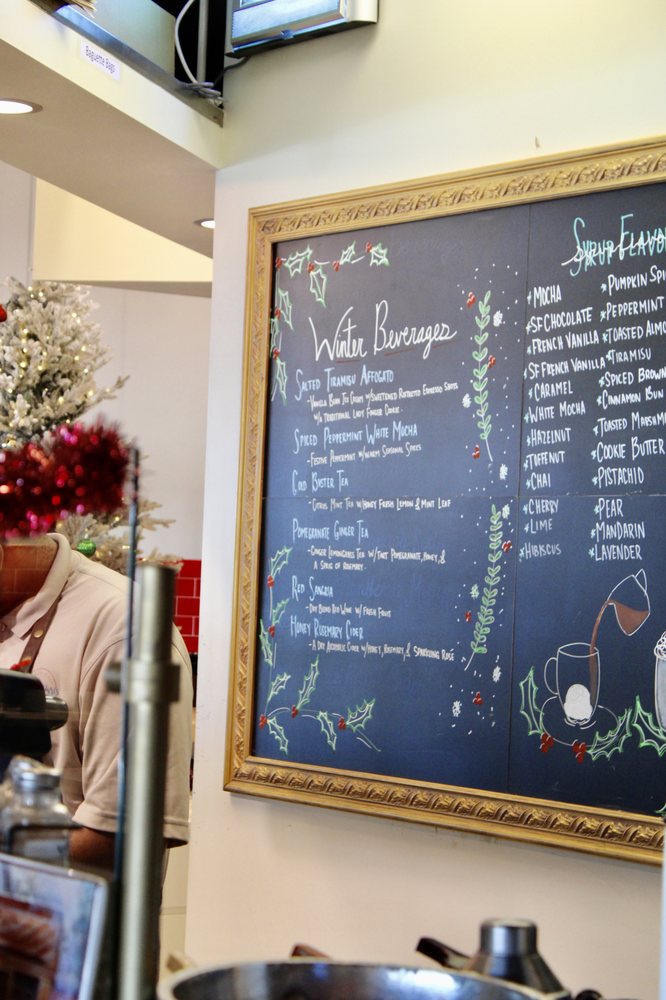 Baguette Bags
Winter Beverages
Salted Tiramisu Affogato
-Vanilla Bean Ice Cream w/Sweetened Ristretto Espresso Shots
w/a Traditional Lady Finger Cookie.
Spiced Peppermint White Mocha
-Festive Peppermint w/Warm Seasonal Spices
Cold Buster Tea
-Citrus Mint Tea w/Honey Fresh Lemon & Mint Leaf
Pomegranate Ginger Tea
-Ginger Lemongrass Tea w/Tart Pomegranate, Honey, &
A Sprig of Rosemary.
Red Sangria
-Dry Blend Red Wine w/Fresh Fruits
Honey Rosemary Cider
-A Dry Alcoholic Cider w/Honey, Rosemary, & Sparkling Rosé
Syrup Flavo
*Mocha
*SF Chocolate
*French Vanilla
*SF French Vanilla
*Caramel
*White Mocha
*Hazelnut
*Toffenut
*Chai
*Cherry
*Lime
*Hibiscus
*Pumpkin Spi
*Peppermint
*Toasted Almo
*Tiramisu
*Spiced Brown
*Cinnamon Bun
*Toasted Marshm
*Cookie Butter
*Pistachio
*Pear
*Mandarin
*Lavender